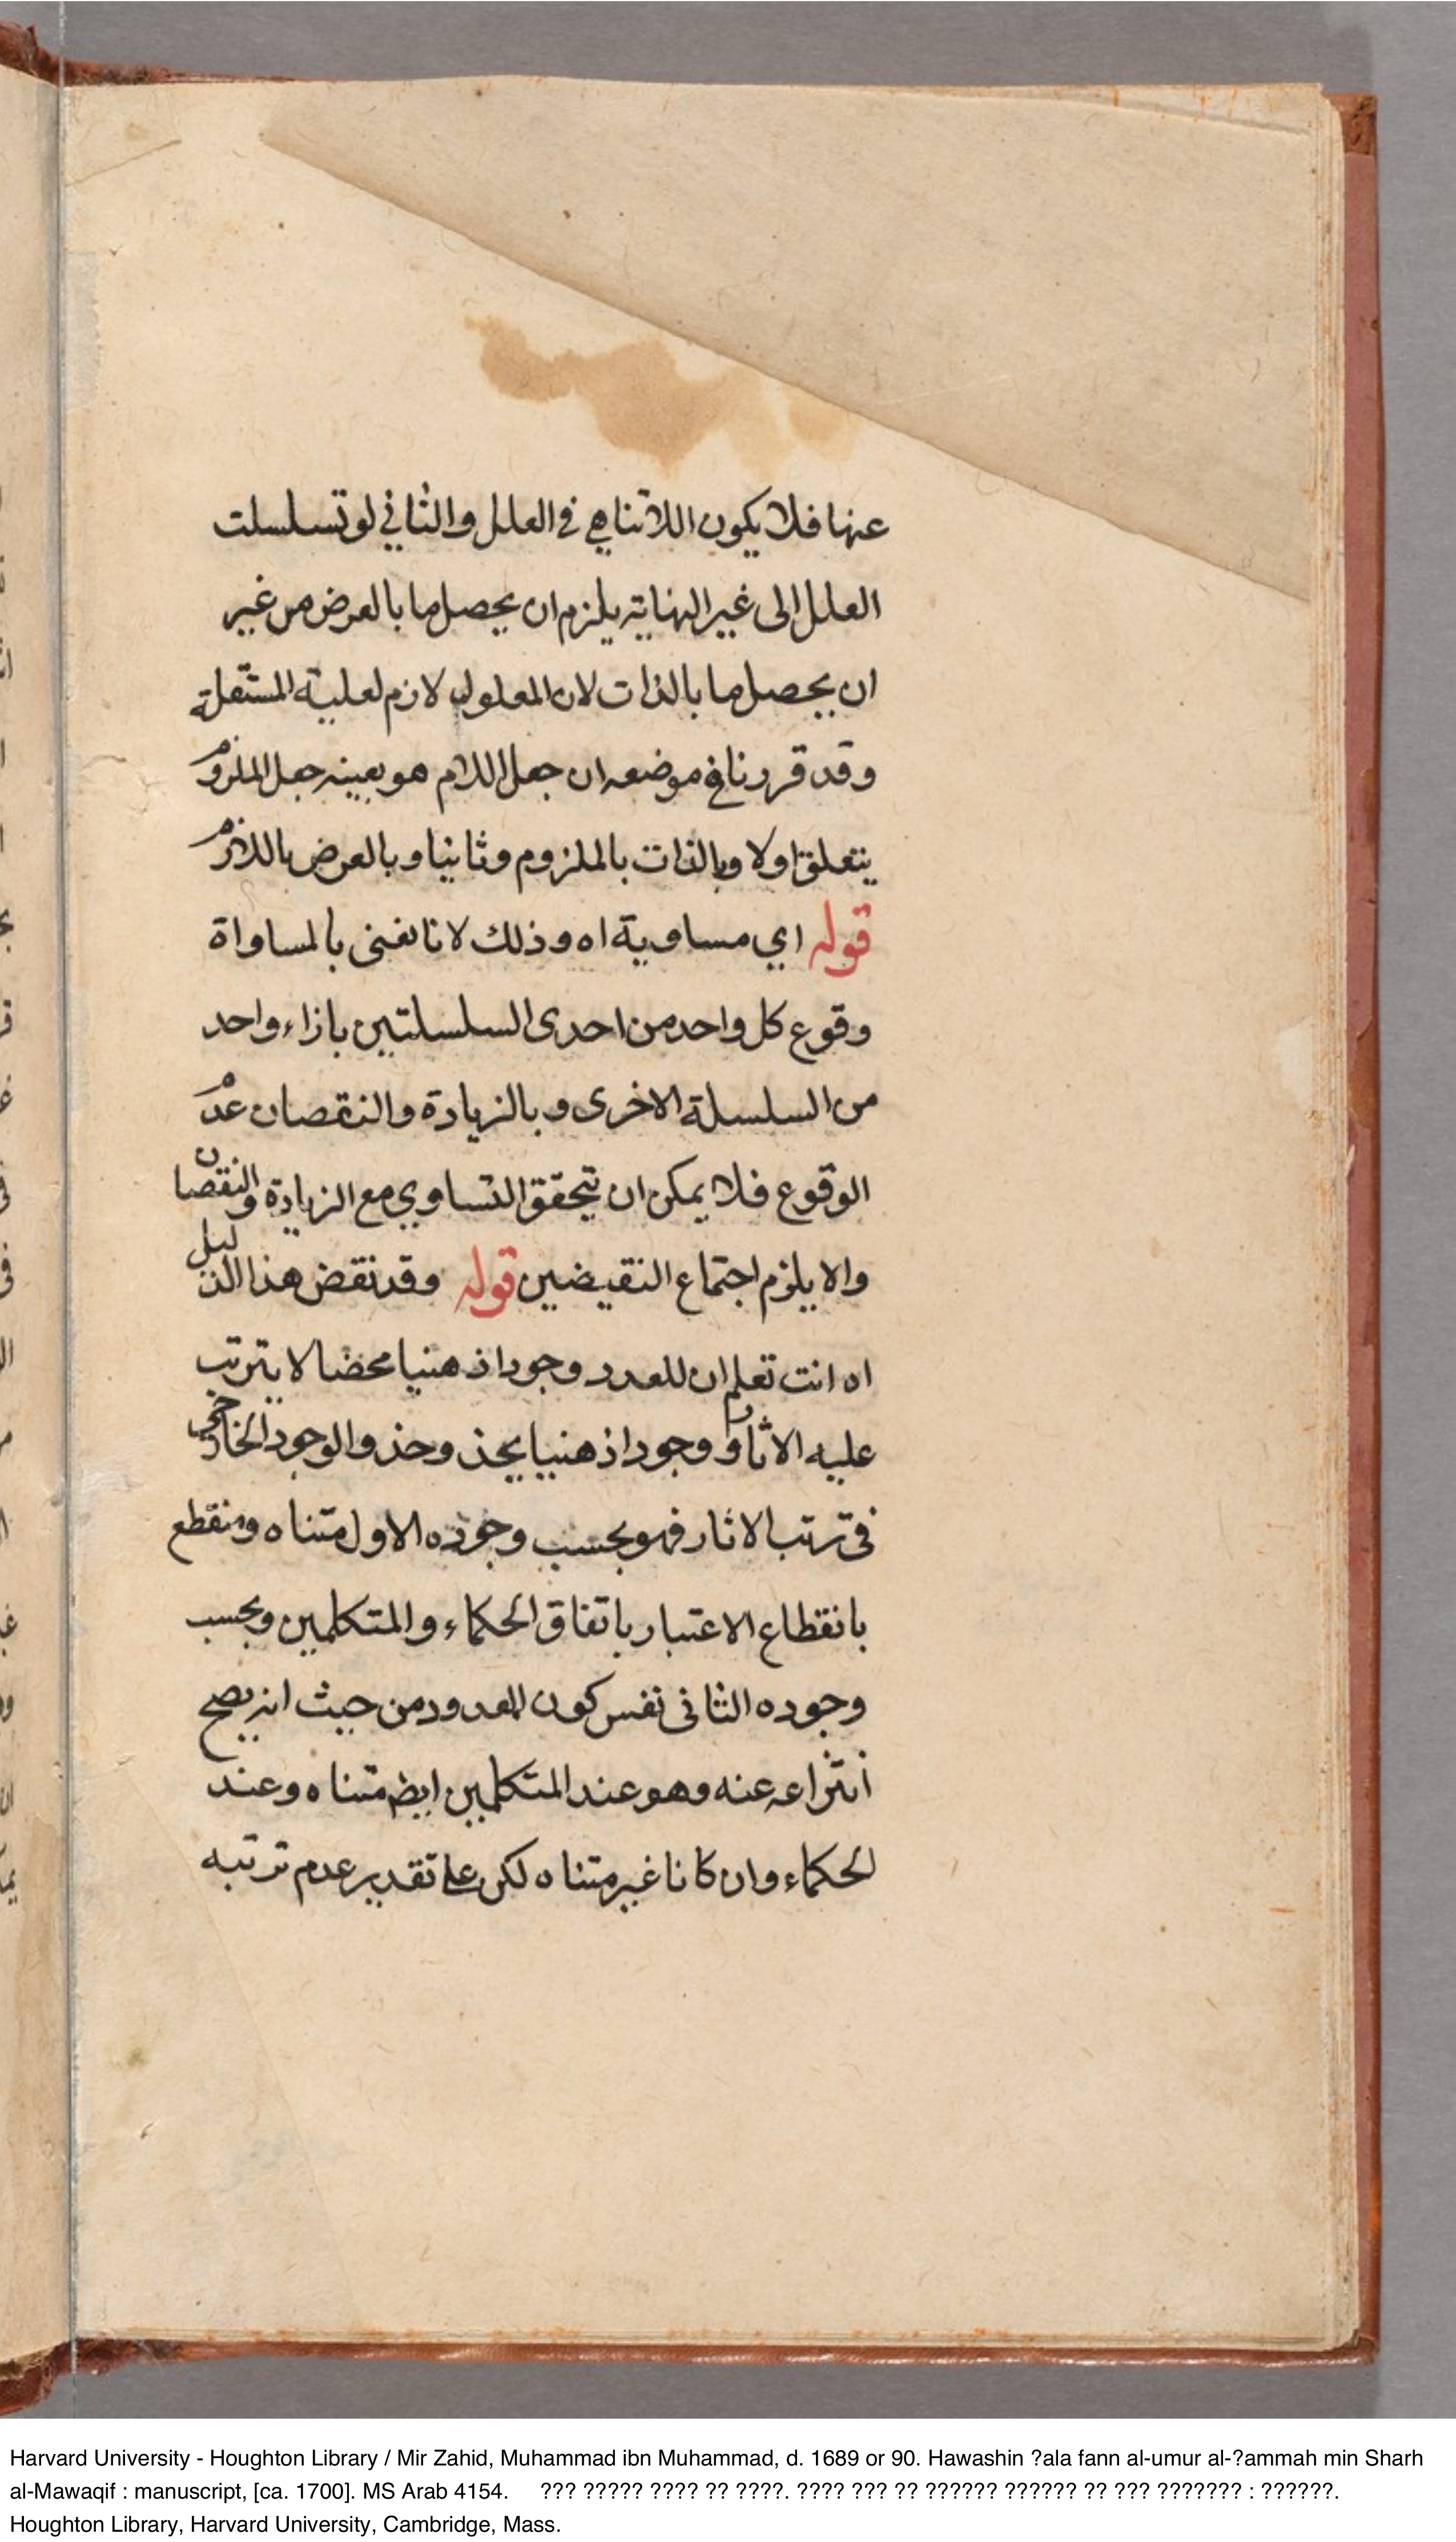 عنها فلا يكون اللاتناهي في العلل والثاني لو تسلسلت
العلل الى غير النهاية يلزم ان يحصل ما بالعرض من غير
ان يحصل ما بالذات لان المعلول لازم لعليته المستقلة
وقد قررنا في موضعه ان جعل اللازم هو بعينه جعل الملزوم
يتعلق اولا وبالذات بالملزوم وثانيا وبالعرض باللازم
قوله اي مساوية اه وذلك لانا نعنى بالمساواة
وقوع كل واحد من احدى السلسلتين بازاء واحد
من السلسلة الاخرى وبالزيادة والنقصان عدم
الوقوع فلا يمكن ان يتحقق التساوي مع الزيادة والنقصان
والا يلزم اجتماع النقيضين قوله وقد نقض هذا الدليل
اه انت تعلم ان للعدد وجودا ذهنيا محضا لا يترتب
عليه الاثار ووجودا ذهنيا يحذ وحذو الوجود الخارجي
في ترتب الاثار فهو بحسب وجوده الاول متناه ومنقطع
بانقطاع الاعتبار باتفاق الحكماء والمتكلمين وبحسب
وجوده الثاني نفس كون المعدود من حيث انه يصح
انتزاعه عنه وهو عند المتكلمين ايضا متناه وعند
الحكماء وان كانا غير متناه لكن على تقدير عدم ترتبه
Harvard University - Houghton Library / Mir Zahid, Muhammad ibn Muhammad, d. 1689 or 90. Hawashin ?ala fann al-umur al-?ammah min Sharh
al-Mawaqif : manuscript, [ca. 1700]. MS Arab 4154. ??? ????? ???? ?? ????. ???? ??? ?? ?????? ?????? ?? ??? ??????? : ??????.
Houghton Library, Harvard University, Cambridge, Mass.